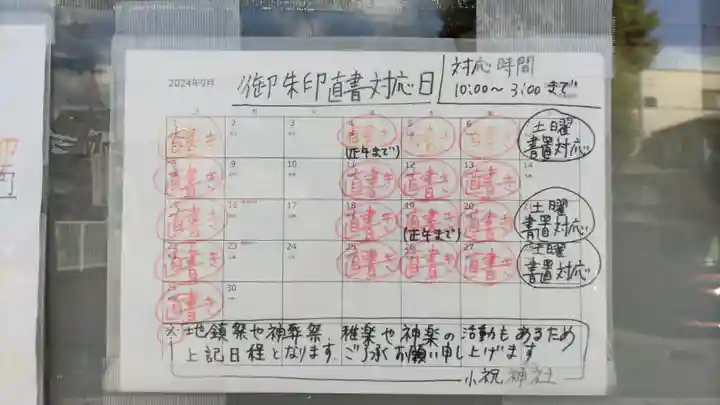 2024年9月
御朱印直書対応日
対応時間
10:00～3:00まで
1 2 3 4 5 6
直書き 直書き 直書き 直書き 土曜
(正午まで) 書置対応
9 10 11 12 13 14
直書き 直書き 直書き 直書き
16 17 18 19 20
直書き 直書き 直書き 直書き 土曜
(正午まで) 書置対応
22 23 24 25 26 27
直書き 直書き 直書き 直書き 土曜
書置対応
30
直書き
※地鎮祭や神葬祭 稚楽や神楽の活動もあるため
上記日程となります。ご了承お願い申し上げます
小祝神社